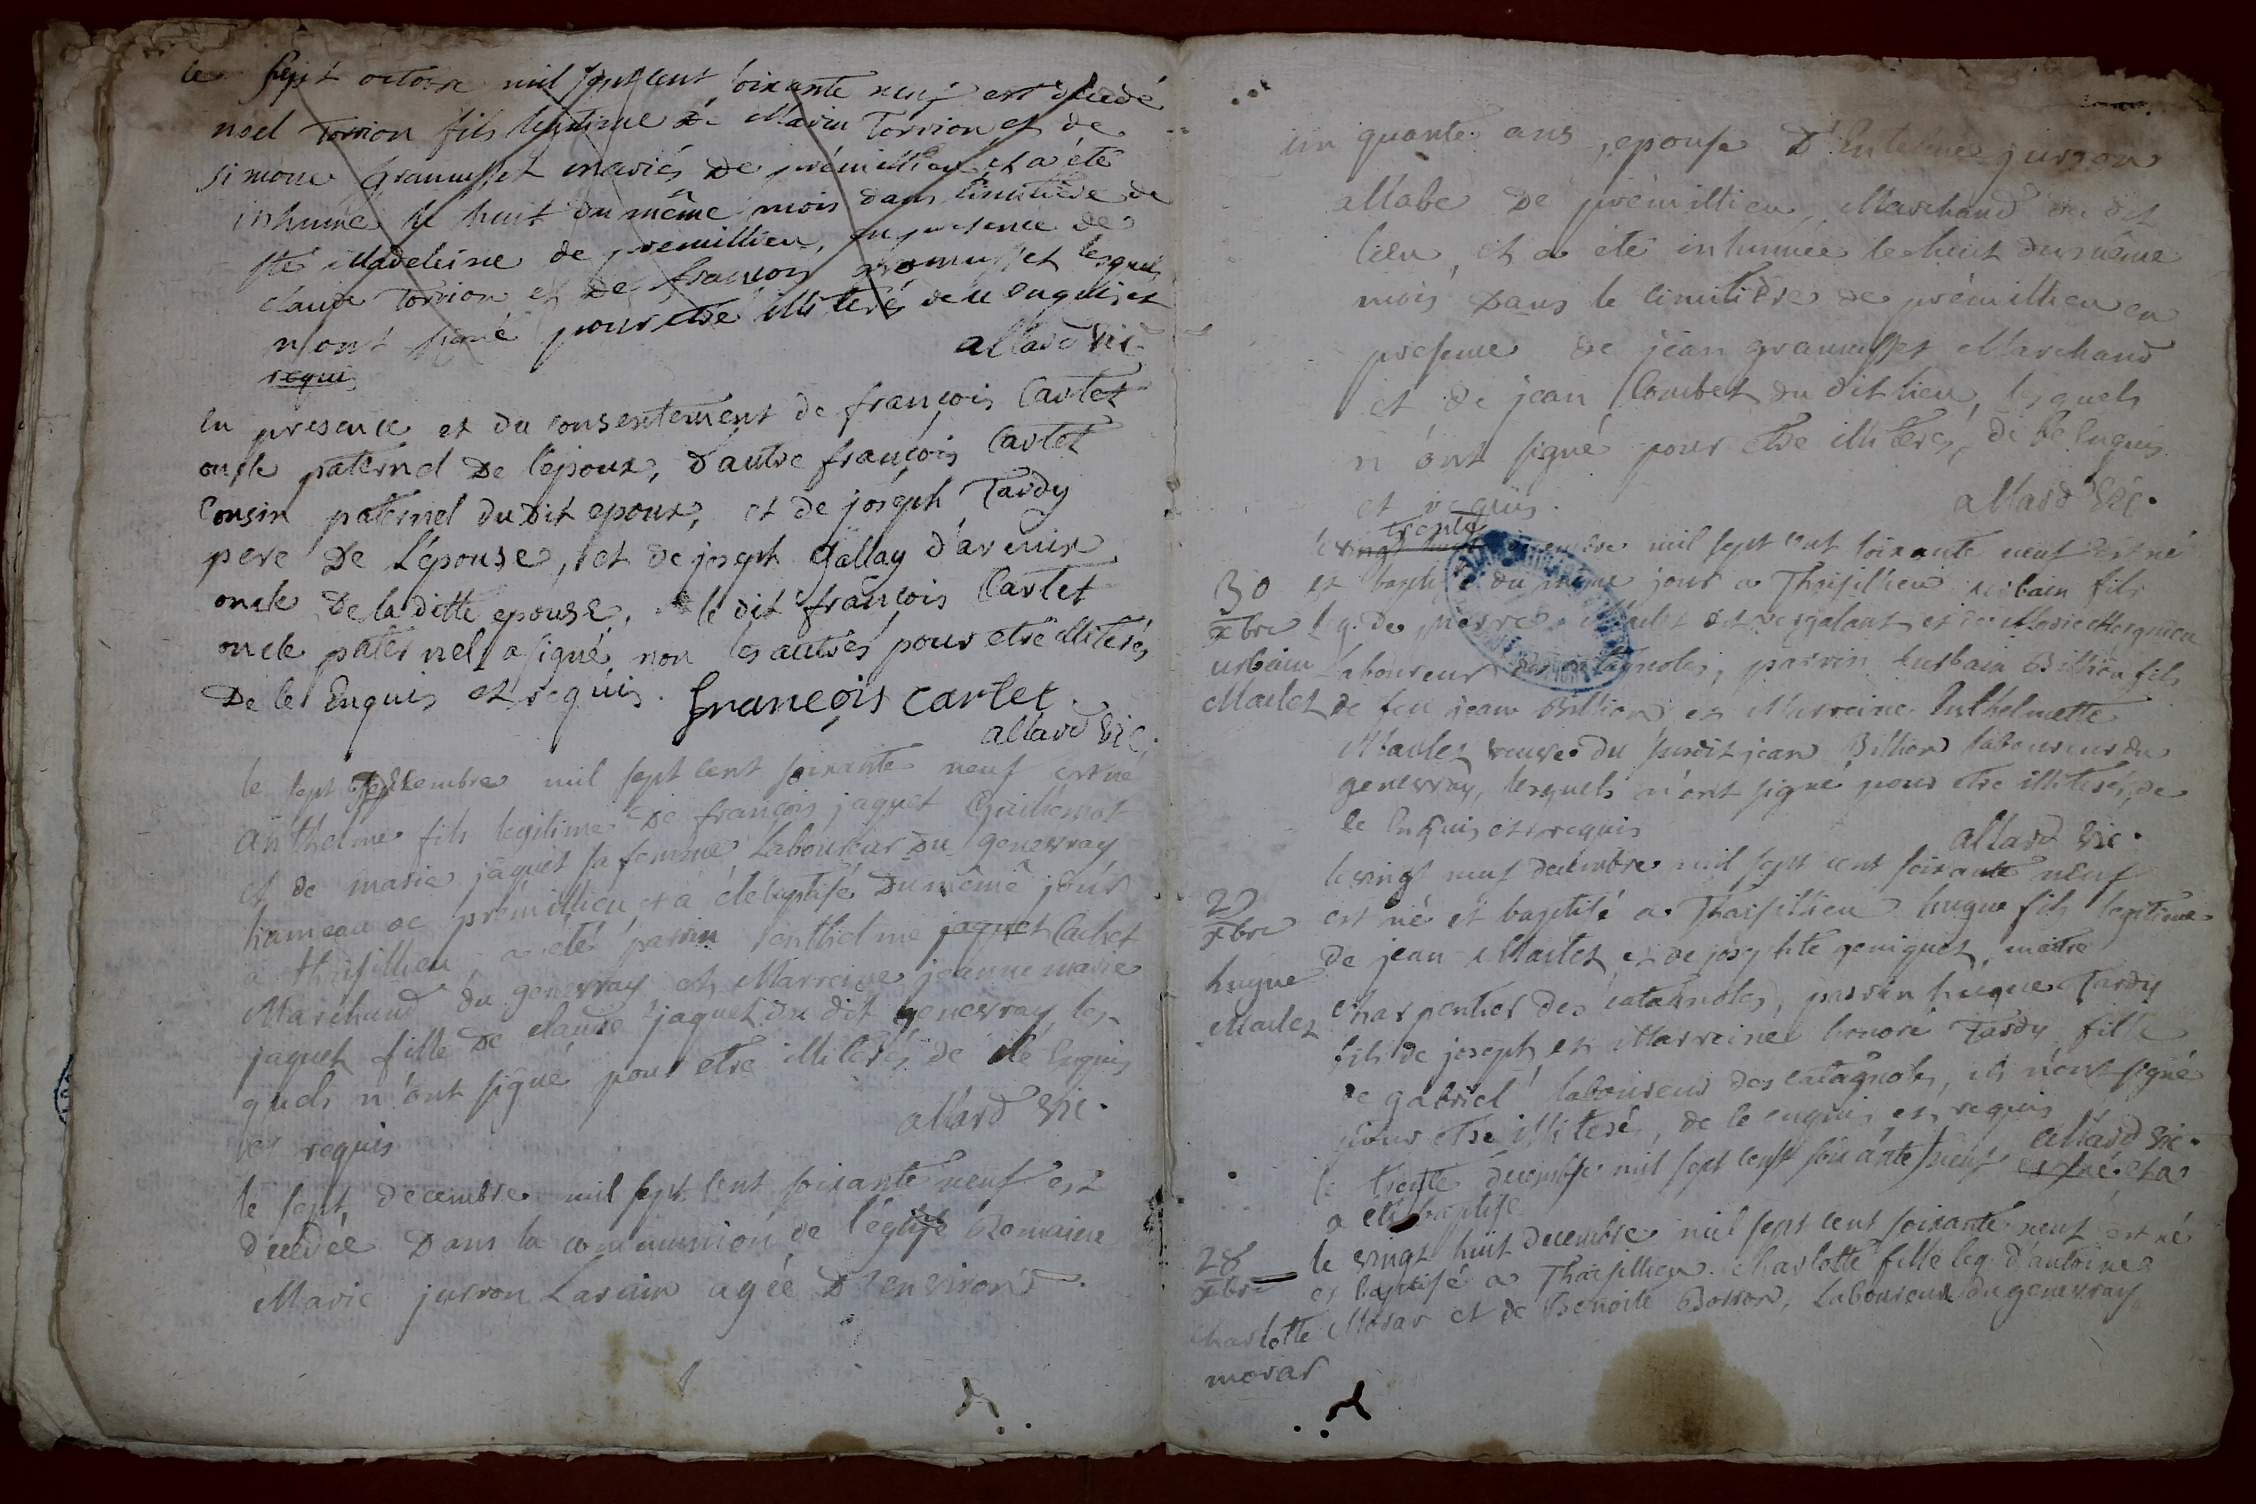 le sept octobre mil sept cent soixante neuf est décedé
noel Torrion fils legitime de Marin Torrion et de
simone Gramusset mariés de prémillieu, et a été
inhumé le huit du même mois dans cimitière de
ste Madeleine de premillieu, en presence de
claude Torrion et de françois gramusset lesquels
n'ont signé pour etre illiterés de ce enquis et
requis
allard vic.
en presence et du consentement de françois Cartet
oncle paternel de l'epoux, d'autre françois Cartet
Cousin paternel du dit epoux, et de joseph Tardy
pere de L'épouse, et de joseph Gallay d'aremix
oncle de la ditte epouse, le dit françois Cartet
oncle paternel a signé, non les autres pour etre illiterés
De le Enquis et requis. françois cartet
allard vic.
le sept septembre mil sept cent soixante neuf est né
anthelme fils legitime de françois jaquet Guillemot
et de marie jaquet sa femme Laboureur du genevray
hameau de prémillieu et a été baptisé du même jour
a thesillieu a été parrin enthelme jaquet Cachet
Marchand du genevray et Marreine jeanne marie
jaquet fille de claude jaquet du dit genevray, les-
quels n'ont signé pour etre illiterés de le Enquis
et requis
allard vic.
le sept decembre mil sept cent soixante neuf est
décedée Dans la communion de l'église Romaine
Marie jurron Larain agée d'environ
cin quante ans, epouse D'Entelme jurron
allabe de prémillieu, Marchand du dit
lieu, et a été inhumée le huit du même
mois dans le cimitière de prémillieu en
presence de jean gramusset Marchand
et de jean Combet du dit lieu, lesquels
n'ont signé pour etre illiterés, de le Enquis
et requis.
allard vic.
trente
le vingt huit decembre mil sept cent soixante neuf est né
30 et baptisé du même jour a Thaisillieu urbain fils
xbre leg. de pierre Martet dit vergalant et de Marie Morgnieu
urbain Laboureur des catagnoles, parrin urbain Billion fils
Martet de feu jean Billion et Marreine Anthelmette
Martet veuve du susdit jean Billion laboureur du
genevray, lesquels n'ont signé pour etre illiterés, de
le Enquis et requis
allard vic.
le vingt neuf decembre mil sept cent soixante neuf
29 est né et baptisé a Thaisillieu hugue fils legitime
xbre de jean Martet et de josephte geniquet, maitre
hugue charpentier des catagnoles, parrin hugue Tardy
Martet fils de joseph et Marreine honoré Tardy fille
de gabriel laboureur des catagnoles, ils n'ont signé
pour etre illiterés, de le enquis et requis
allard vic.
le trente decembre mil sept cent soixante neuf est né et a
a été baptisé
28 le vingt huit decembre mil sept cent soixante neuf est né
xbre et baptisé a Thaisillieu charlotte fille leg. d'antoine
charlotte Morar et de Benoite Borron, Laboureur du genevray
morar